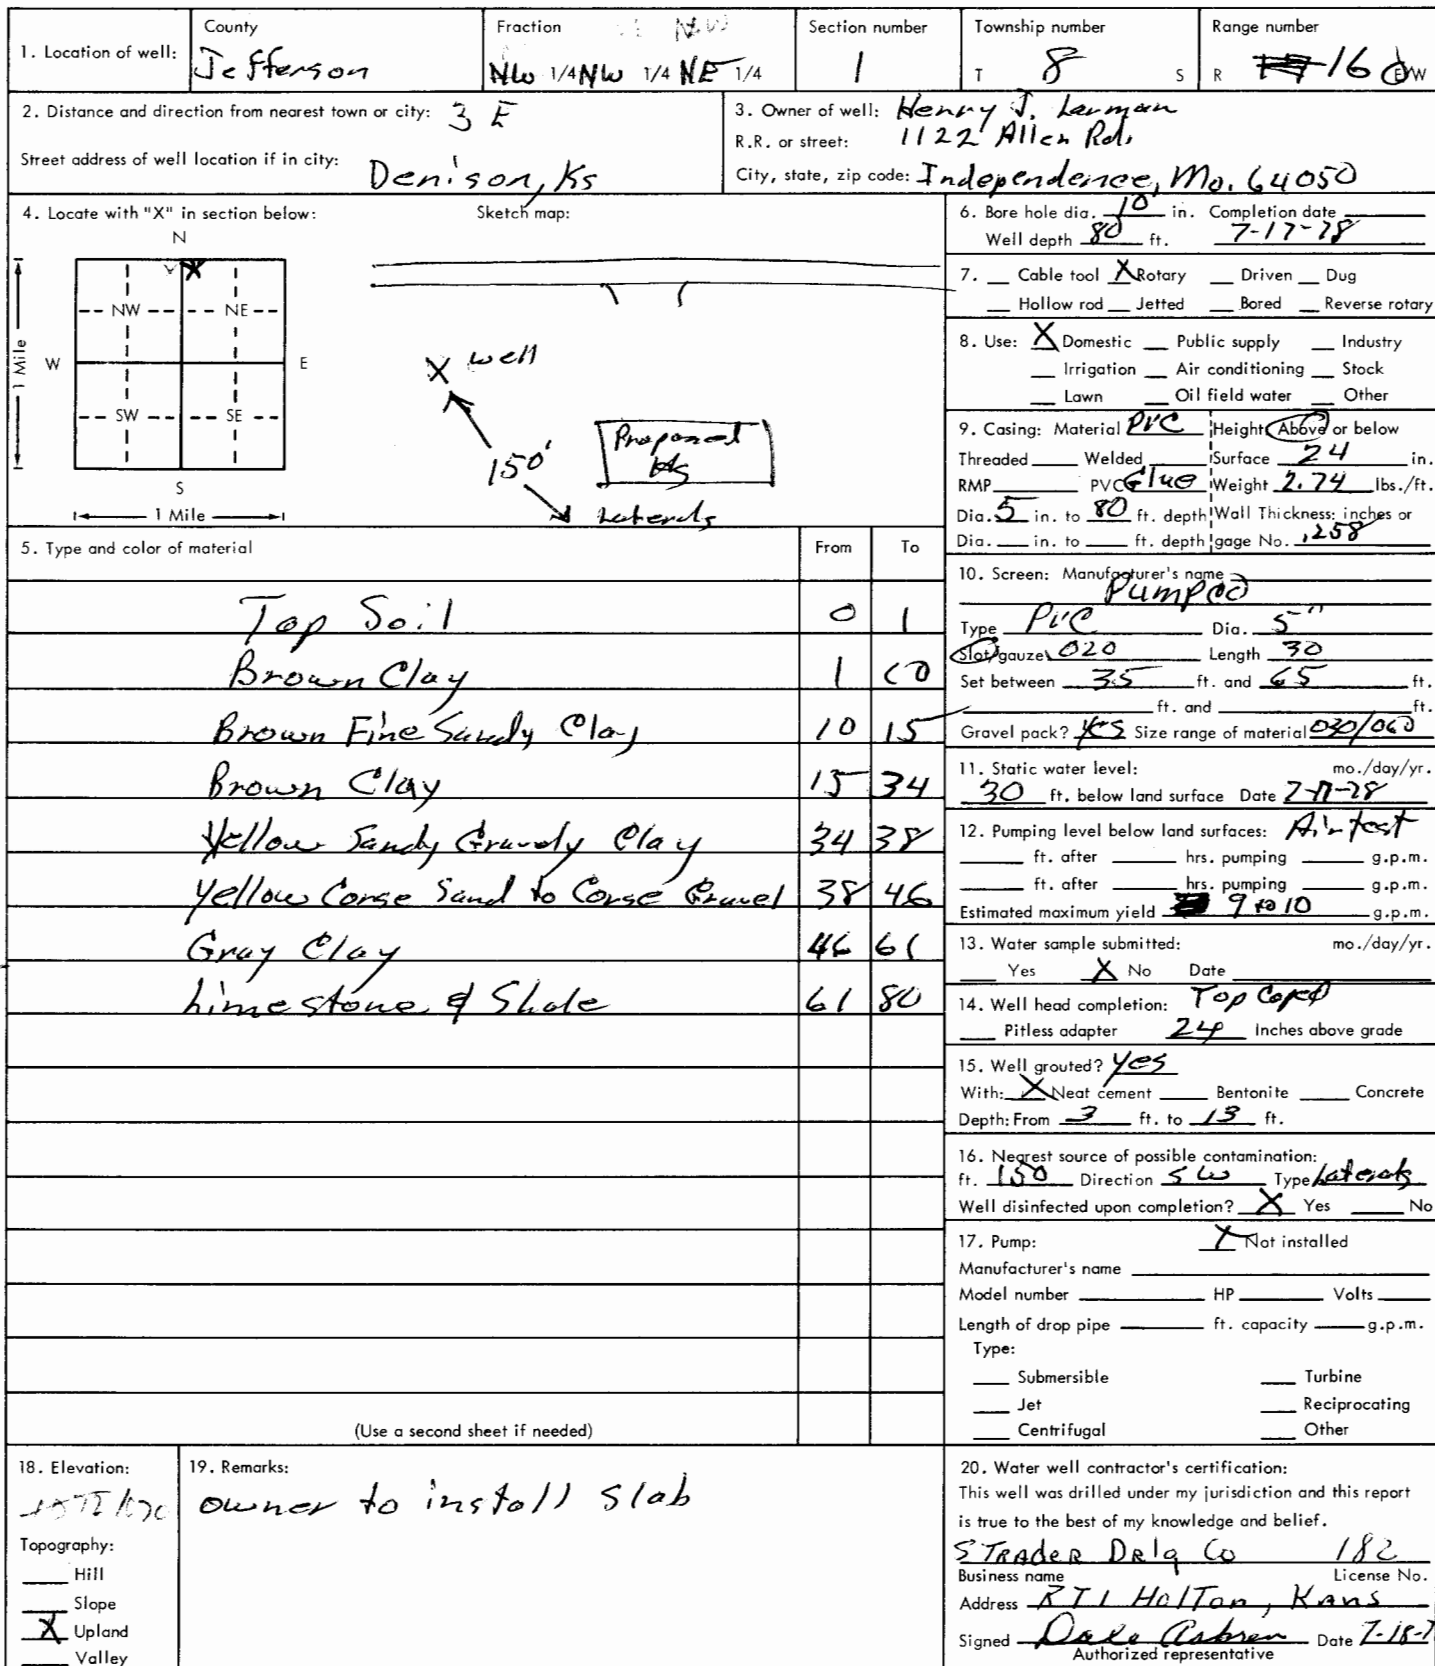 1. Location of well:
County
Jefferson
Fraction
NW 1/4 NW 1/4 NE 1/4
Section number
1
Township number
T 8 S
Range number
R 16 E/W
2. Distance and direction from nearest town or city: 3 E
Street address of well location if in city:
Denison, Ks
3. Owner of well: Henry J.
R.R. or street: 1122 Allen Rd.
City, state, zip code: Independence, Mo. 64050
4. Locate with "X" in section below:
Sketch map:
N
NW NE
W E
SW SE
S
1 Mile
1 Mile
X well
150'
Laterals
Proposed
5. Type and color of material From To
Top Soil 0 1
Brown Clay 1 10
Brown Fine Sandy Clay 10 15
Brown Clay 15 34
Yellow Sandy Gravely Clay 34 38
Yellow Corse Sand to Corse Gravel 38 46
Gray Clay 46 61
Limestone & Shale 61 80
(Use a second sheet if needed)
6. Bore hole dia. 10 in. Completion date
Well depth 80 ft. 7-17-78
7. Cable tool X Rotary Driven Dug
Hollow rod Jetted Bored Reverse rotary
8. Use: X Domestic Public supply Industry
Irrigation Air conditioning Stock
Lawn Oil field water Other
9. Casing: Material PVC Height: Above or below
Threaded Welded Surface 24 in.
RMP PVC Glue Weight 2.74 lbs./ft.
Dia. 5 in. to 80 ft. depth Wall Thickness: inches or
Dia. in. to ft. depth gage No. .258
10. Screen: Manufacturer's name
Pumpco
Type PVC Dia. 5"
Slot/gauze .020 Length 30
Set between 35 ft. and 65 ft.
ft. and ft.
Gravel pack? Yes Size range of material 030/060
11. Static water level: mo./day/yr.
30 ft. below land surface Date 7-17-78
12. Pumping level below land surfaces: Air test
ft. after hrs. pumping g.p.m.
ft. after hrs. pumping g.p.m.
Estimated maximum yield 9 to 10 g.p.m.
13. Water sample submitted: mo./day/yr.
Yes X No Date
14. Well head completion: Top Caped
Pitless adapter 24 Inches above grade
15. Well grouted? Yes
With: X Neat cement Bentonite Concrete
Depth: From 3 ft. to 13 ft.
16. Nearest source of possible contamination:
ft. 150 Direction SW Type Laterals
Well disinfected upon completion? X Yes No
17. Pump: X Not installed
Manufacturer's name
Model number HP Volts
Length of drop pipe ft. capacity g.p.m.
Type:
Submersible Turbine
Jet Reciprocating
Centrifugal Other
18. Elevation:
Topography:
Hill
Slope
X Upland
Valley
19. Remarks:
owner to install slab
20. Water well contractor's certification:
This well was drilled under my jurisdiction and this report
is true to the best of my knowledge and belief.
STRADER Drlg Co 182
Business name License No.
Address RT1 Holton, Kans
Signed Dale Date 7-18-7
Authorized representative